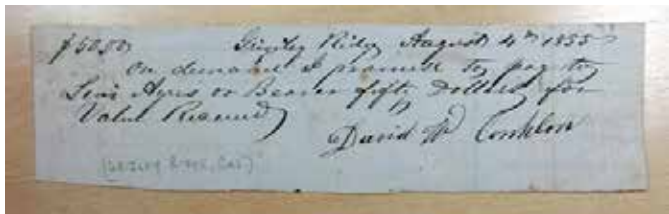 $50.00 Grizley Ridge August 4th 1855
On demand I promise to pay to
Levi Ayres or Bearer fifty Dollars for
Value Received
David W Conklin
(GRIZLEY RIDGE, CAL)